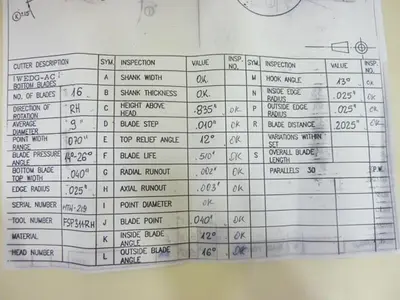 CUTTER DESCRIPTION SYM. INSPECTION VALUE INSP. NO. SYM. INSPECTION VALUE INSP. NO.
WEDG-AC BOTTOM BLADES A SHANK WIDTH O.K. W HOOK ANGLE 13° OK
NO. OF BLADES 16 B SHANK THICKNESS O.K. N INSIDE EDGE RADIUS .025" OK
DIRECTION OF ROTATION RH C HEIGHT ABOVE HEAD .835" OK P OUTSIDE EDGE RADIUS .025" OK
AVERAGE DIAMETER 9" D BLADE STEP .010" OK R BLADE DISTANCE .2025" OK
POINT WIDTH RANGE .070" E TOP RELIEF ANGLE 12° OK VARIATIONS WITHIN SET
BLADE PRESSURE ANGLE F BLADE LIFE .510" OK S OVERALL BLADE LENGTH
BOTTOM BLADE TOP WIDTH .040" G RADIAL RUNOUT .002" OK PARALLELS 30 P.W.
EDGE RADIUS .025" H AXIAL RUNOUT .003" OK
SERIAL NUMBER I POINT DIAMETER OK
TOOL NUMBER FSP311RH J BLADE POINT .040" OK
MATERIAL K INSIDE BLADE ANGLE 12° OK
HEAD NUMBER L OUTSIDE BLADE ANGLE 16° OK